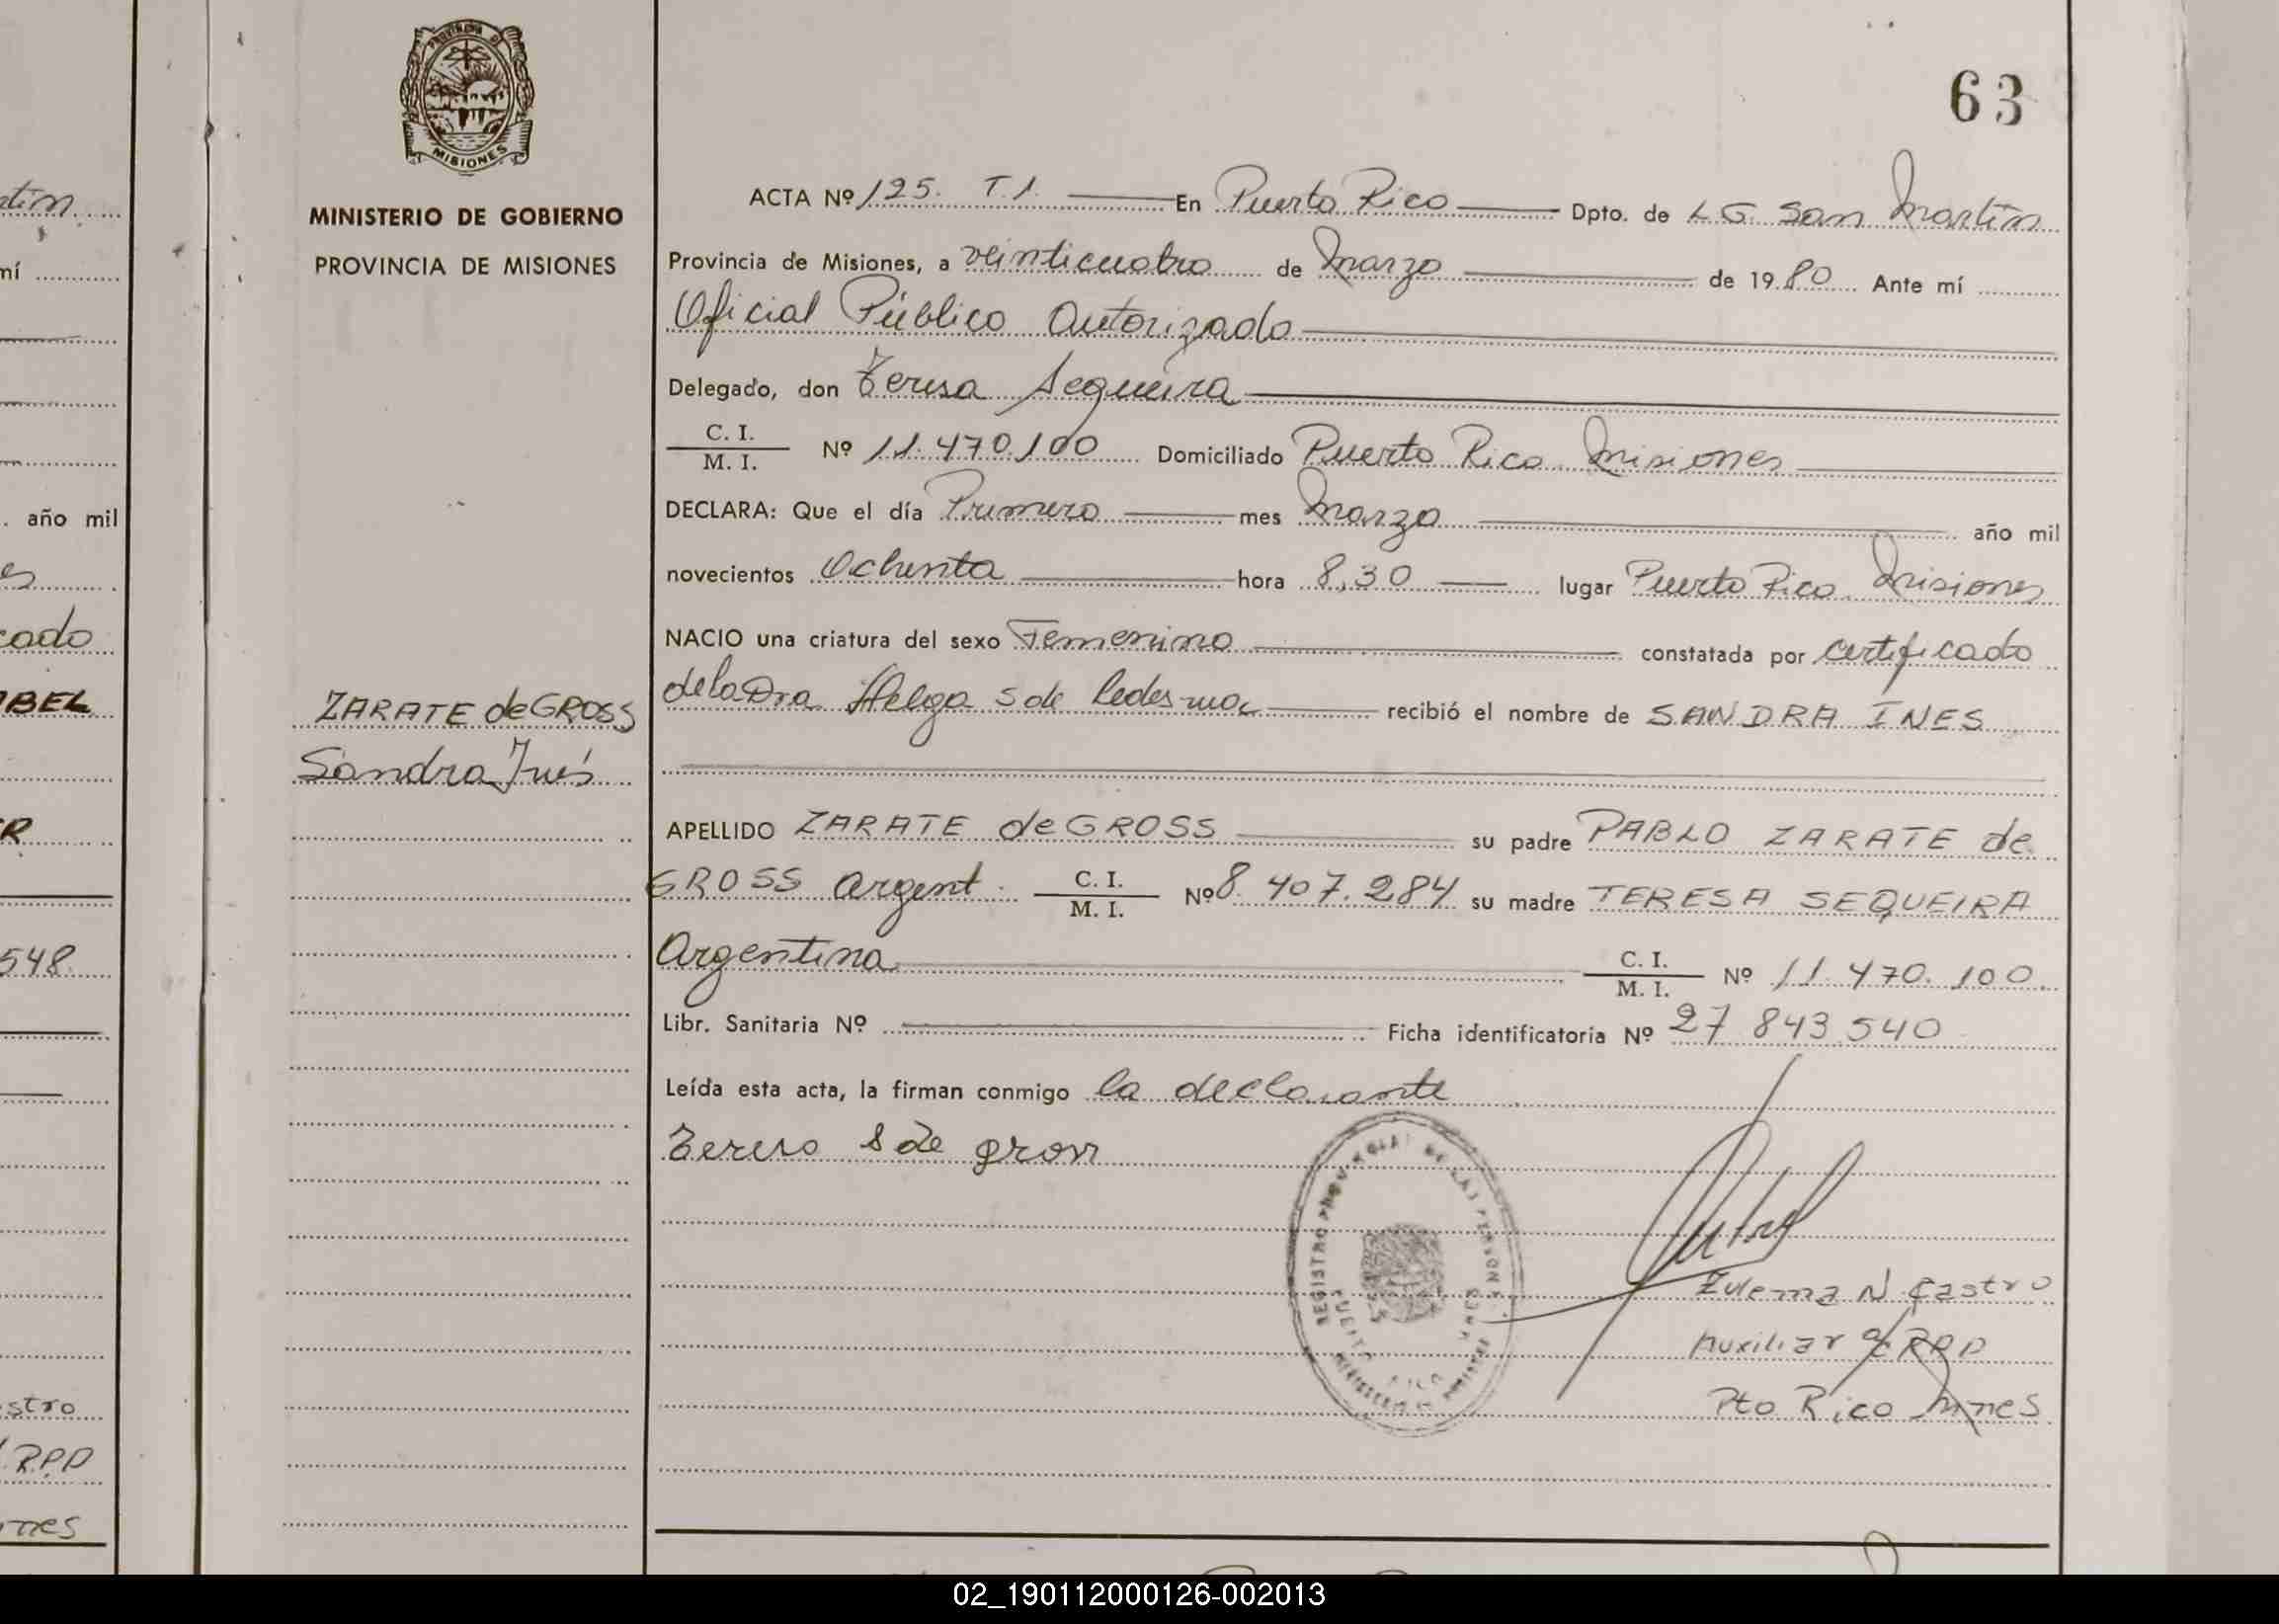 63
PROVINCIA DE
MISIONES
MINISTERIO DE GOBIERNO
PROVINCIA DE MISIONES
ZARATE de GROSS
Sandra Inés
ACTA Nº 125. T.1. En Puerto Rico Dpto. de L G. San Martín
Provincia de Misiones, a veinticuatro de Marzo de 1980 Ante mí
Oficial Público Autorizado
Delegado, don Teresa Sequeira
C. I.
M. I. Nº 11.470.100 Domiciliado Puerto Rico Misiones
DECLARA: Que el día Primero mes Marzo año mil
novecientos Ochenta hora 8,30 lugar Puerto Rico. Misiones
NACIO una criatura del sexo Femenino constatada por certificado
de la Dra Helga S de Ledesma recibió el nombre de SANDRA INES
APELLIDO ZARATE de GROSS su padre PABLO ZARATE de
GROSS Argent. C. I. M. I. Nº 8.407.284 su madre TERESA SEQUEIRA
Argentina C. I. M. I. Nº 11.470.100.
Libr. Sanitaria Nº Ficha identificatoria Nº 27 843.540
Leída esta acta, la firman conmigo la declarante
S de
REGISTRO PROVINCIAL DE LAS PERSONAS
PUERTO RICO
Zulema N Castro
Auxiliar RPP
Pto Rico Mnes
tín
mí
año mil
es
cado
BEL
R
548.
stro
RPP
nes
02_190112000126-002013